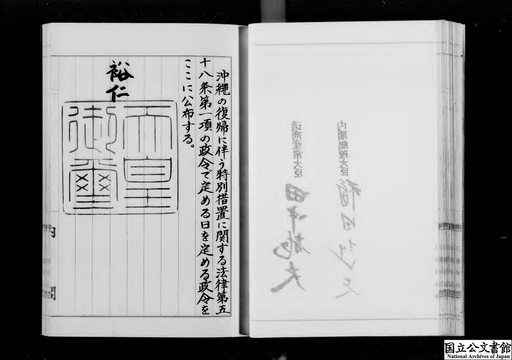 沖縄の復帰に伴う特別措置に関する法律第五
十八条第一項の政令で定める日を定める政令を
ここに公布する。
裕仁
天皇
御璽
内閣
内閣総理大臣
福田赳夫
通商産業大臣
田中龍夫
国立公文書館
National Archives of Japan